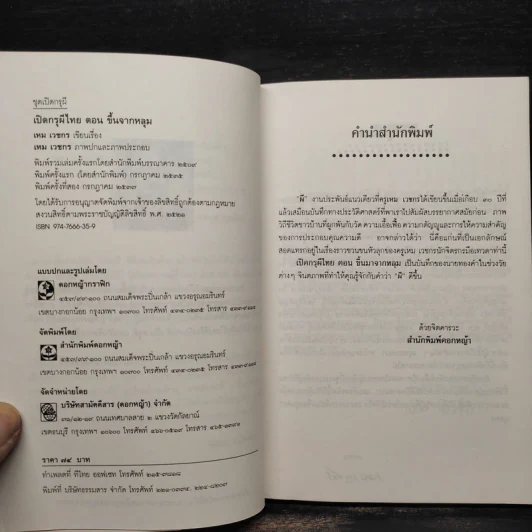 ชุดเปิดกรุผี
เปิดกรุผีไทย ตอน ขึ้นจากหลุม
เหม เวชกร เขียนเรื่อง
เหม เวชกร ภาพปกและภาพประกอบ
พิมพ์รวมเล่มครั้งแรกโดยสำนักพิมพ์บรรณาคาร ๒๕๐๙
พิมพ์ครั้งแรก (โดยสำนักพิมพ์) กรกฎาคม ๒๕๓๕
พิมพ์ครั้งที่สอง กรกฎาคม ๒๕๓๗
โดยได้รับการอนุญาตจัดพิมพ์จากเจ้าของลิขสิทธิ์ถูกต้องตามกฎหมาย
สงวนลิขสิทธิ์ตามพระราชบัญญัติลิขสิทธิ์ พ.ศ. ๒๕๒๑
ISBN 974-7666-35-9
แบบปกและรูปเล่มโดย
ดอกหญ้ากราฟิก
๔๕๙/๙๙-๑๐๐ ถนนสมเด็จพระปิ่นเกล้า แขวงอรุณอมรินทร์
เขตบางกอกน้อย กรุงเทพฯ ๑๐๗๐๐ โทรศัพท์
จัดพิมพ์โดย
สำนักพิมพ์ดอกหญ้า
๔๕๙/๙๙-๑๐๐ ถนนสมเด็จพระปิ่นเกล้า แขวงอรุณอมรินทร์
เขตบางกอกน้อย กรุงเทพฯ ๑๐๗๐๐ โทรศัพท์
จัดจำหน่ายโดย
บริษัทสามัคคีสาร (ดอกหญ้า) จำกัด
ถนนเทศบาลสาย ๒ แขวงวัดกัลยาณ์
เขตธนบุรี กรุงเทพฯ ๑๐๖๐๐ โทรศัพท์ โทรสาร
ราคา ๗๕ บาท
ทำเพลตที่ ทีไทย ออฟเซท โทรศัพท์
พิมพ์ที่ บริษัทธรรมสาร จำกัด โทรศัพท์
คำนำสำนักพิมพ์
"ผี" งานประพันธ์แนวเดียวที่ครูเหม เวชกรได้เขียนขึ้นเมื่อเกือบ ๓๐ ปีที่
แล้วเสมือนบันทึกทางประวัติศาสตร์ที่พาเราไปสัมผัสบรรยากาศสมัยก่อน ภาพ
วิถีชีวิตชาวบ้านที่ผูกพันกับวัด ความเอื้อเฟื้อ ความกตัญญูและการให้ความสำคัญ
ของการประกอบคุณความดี - อาจกล่าวได้ว่า นี่คือแก่นที่เป็นเอกลักษณ์
สอดแทรกอยู่ในเรื่องราวชวนขนหัวลุกของครูเหม เวชกรนักจิตรกรเอกมือเทวดาท่านนี้
เปิดกรุผีไทย ตอน ขึ้นมาจากหลุม เป็นบันทึกของนายทองคำในช่วงวัย
ต่างๆ จินตภาพที่ทำให้คุณรู้จักกับคำว่า "ผี" ดีขึ้น
ด้วยจิตคารวะ
สำนักพิมพ์ดอกหญ้า